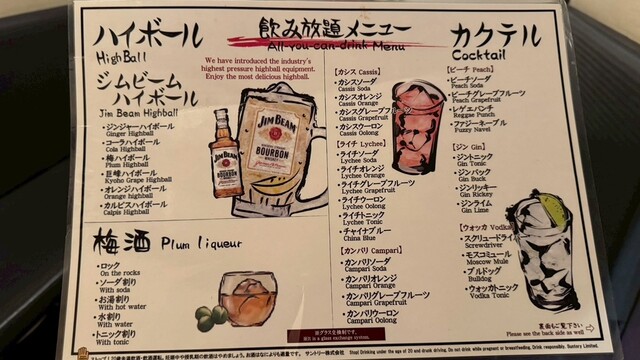 飲み放題メニュー
All-you-can-drink Menu
ハイボール
HighBall
We have introduced the industry's
highest pressure highball equipment.
Enjoy the most delicious highball.
ジムビーム
ハイボール
Jim Beam Highball
・ジンジャーハイボール
Ginger Highball
・コーラハイボール
Cola Highball
・梅ハイボール
Plum Highball
・巨峰ハイボール
Kyoho Grape Highball
・オレンジハイボール
Orange highball
・カルピスハイボール
Calpis Highball
JIM BEAM
BOURBON
JIM BEAM
BOURBON
梅酒 Plum liqueur
・ロック
On the rocks
・ソーダ割り
With soda
・お湯割り
With hot water
・水割り
With water
・トニック割り
With tonic
カクテル
Cocktail
【カシス Cassis】
・カシスソーダ
Cassis Soda
・カシスオレンジ
Cassis Orange
・カシスグレープフルーツ
Cassis Grapefruit
・カシスウーロン
Cassis Oolong
【ライチ Lychee】
・ライチソーダ
Lychee Soda
・ライチオレンジ
Lychee Orange
・ライチグレープフルーツ
Lychee Grapefruit
・ライチウーロン
Lychee Oolong
・ライチトニック
Lychee Tonic
・チャイナブルー
China Blue
【カンパリ Campari】
・カンパリソーダ
Campari Soda
・カンパリオレンジ
Campari Orange
・カンパリグレープフルーツ
Campari Grapefruit
・カンパリウーロン
Campari Oolong
【ピーチ Peach】
・ピーチソーダ
Peach Soda
・ピーチグレープフルーツ
Peach Grapefruit
・レゲエパンチ
Reggae Punch
・ファジーネーブル
Fuzzy Navel
【ジン Gin】
・ジントニック
Gin Tonic
・ジンバック
Gin Buck
・ジンリッキー
Gin Rickey
・ジンライム
Gin Lime
【ウォッカ Vodka】
・スクリュードライバー
Screwdriver
・モスコミュール
Moscow Mule
・ブルドッグ
Bulldog
・ウォッカトニック
Vodka Tonic
裏面もご覧下さい
Please see the back side as well
※グラス交換制です。
This is a glass exchange system.
ストップ!20歳未満飲酒・飲酒運転。妊娠中や授乳期の飲酒はやめましょう。お酒はなによりも適量です。 サントリー株式会社 Stop! Drinking under the age of 20 and drunk driving. Do not drink while pregnant or breastfeeding. Drink responsibly. Suntory Limited.